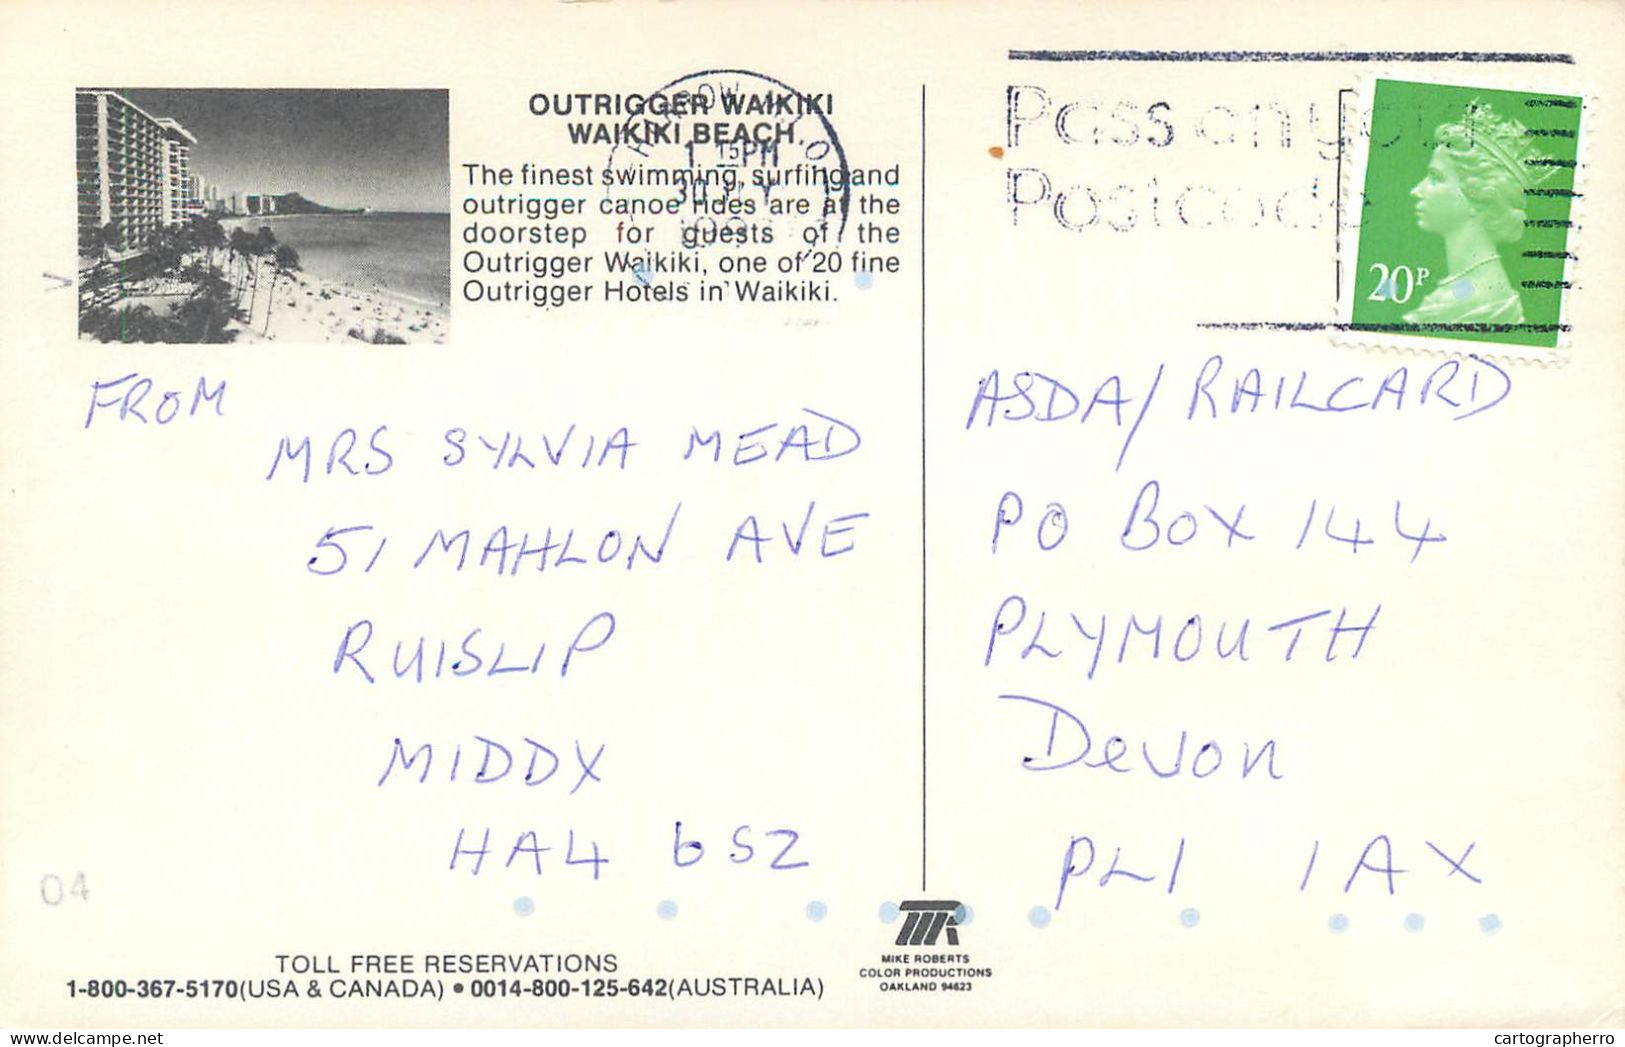 OUTRIGGER WAIKIKI
WAIKIKI BEACH
The finest swimming, surfing and
outrigger canoe rides are at the
doorstep for guests of the
Outrigger Waikiki, one of 20 fine
Outrigger Hotels in Waikiki.
HARROW
1 15PM
30
Pass on your
Postcode
20P
FROM
MRS SYLVIA MEAD
51 MAHLON AVE
RUISLIP
MIDDX
HA4 6SZ
ASDA/RAILCARD
PO BOX 144
PLYMOUTH
DEVON
PL1 1AX
04
TOLL FREE RESERVATIONS
1-800-367-5170(USA & CANADA) • 0014-800-125-642(AUSTRALIA)
MIKE ROBERTS
COLOR PRODUCTIONS
OAKLAND 94623
cartographerro